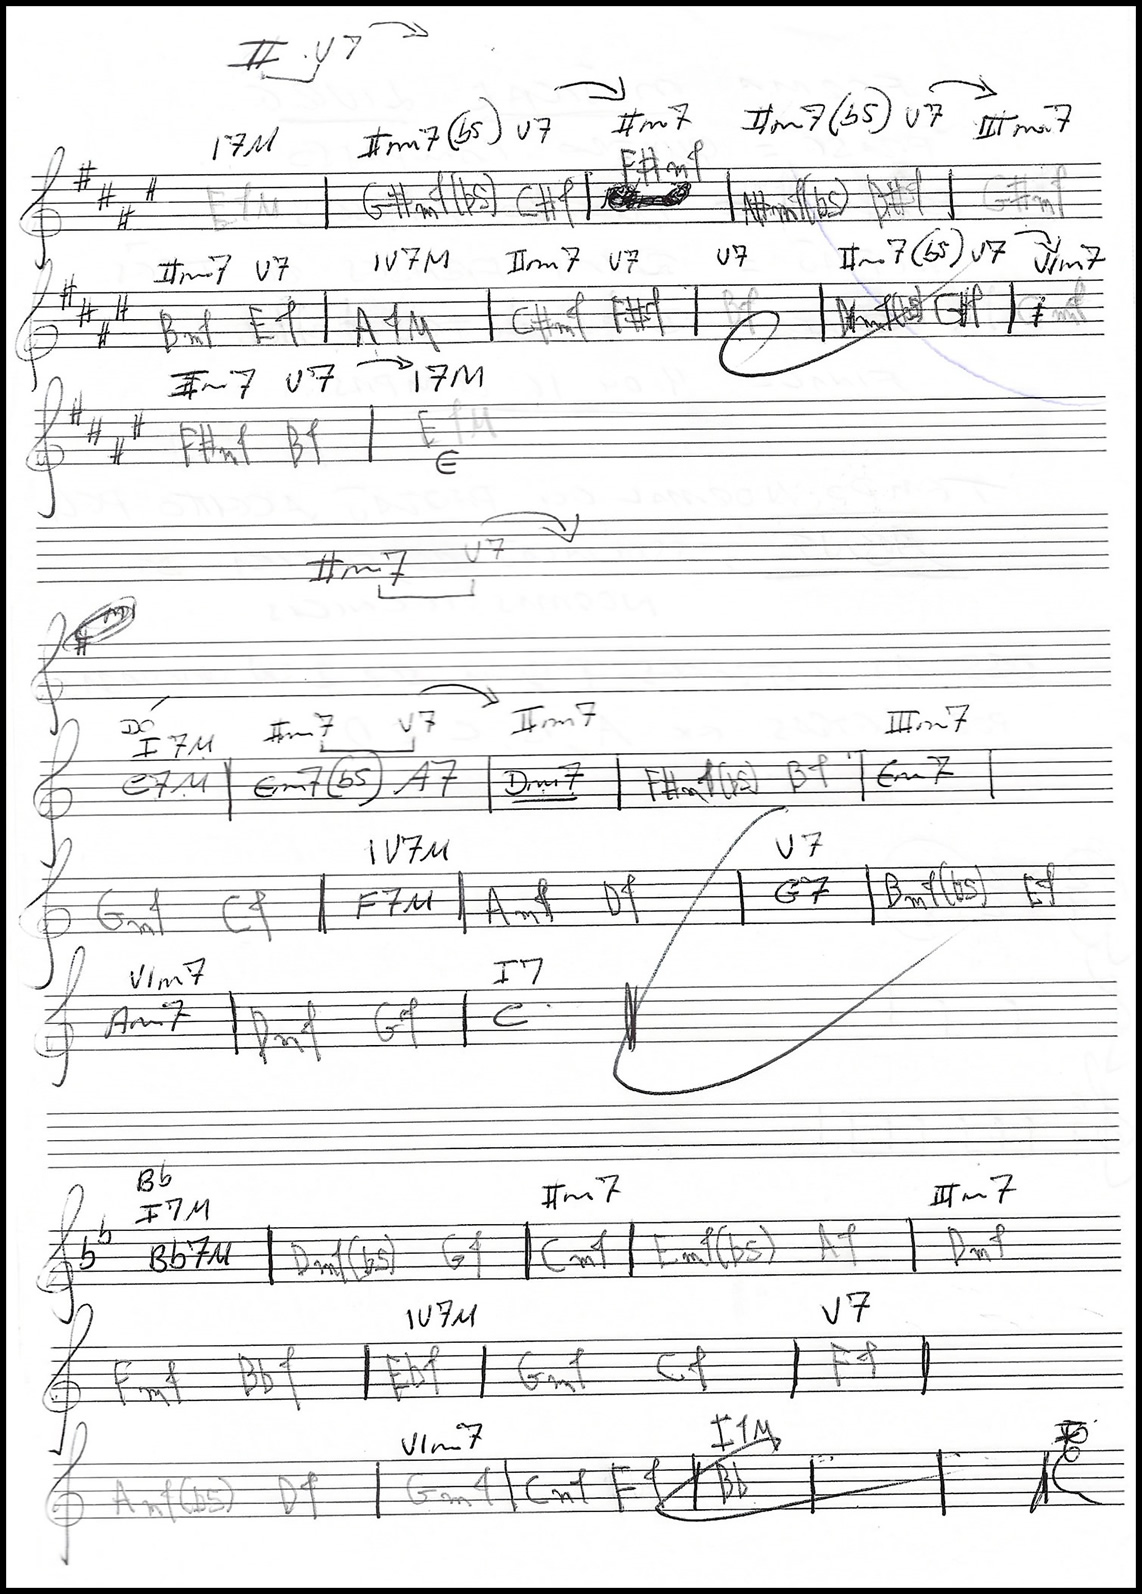 II V7
I7M IIm7(b5) V7 IIm7 IIm7(b5) V7 IIIm7
E7M G#m7(b5) C#7 F#m7 A#m7(b5) D#7 G#m7
IIm7 V7 IV7M IIm7 V7 V7 IIm7(b5) V7 VIm7
Bm7 E7 A7M C#m7 F#7 B7 G#7
IIm7 V7 I7M
F#m7 B7 E7M
E
IIm7 V7
DÓ
I7M IIm7 V7 IIm7 IIIm7
C7M Em7(b5) A7 Dm7 F#m7(b5) B7 Em7
IV7M V7
Gm7 C7 F7M Am7 D7 G7 Bm7(b5) E7
VIm7 I7
Am7 Dm7 G7 C
Bb
I7M IIm7 IIIm7
Bb7M Dm7(b5) G7 Cm7 Em7(b5) A7 Dm7
IV7M V7
Fm7 Bb7 Eb7 Gm7 C7 F7
VIm7 I7M
Am7(b5) D7 Gm7 Cm7 F7 Bb